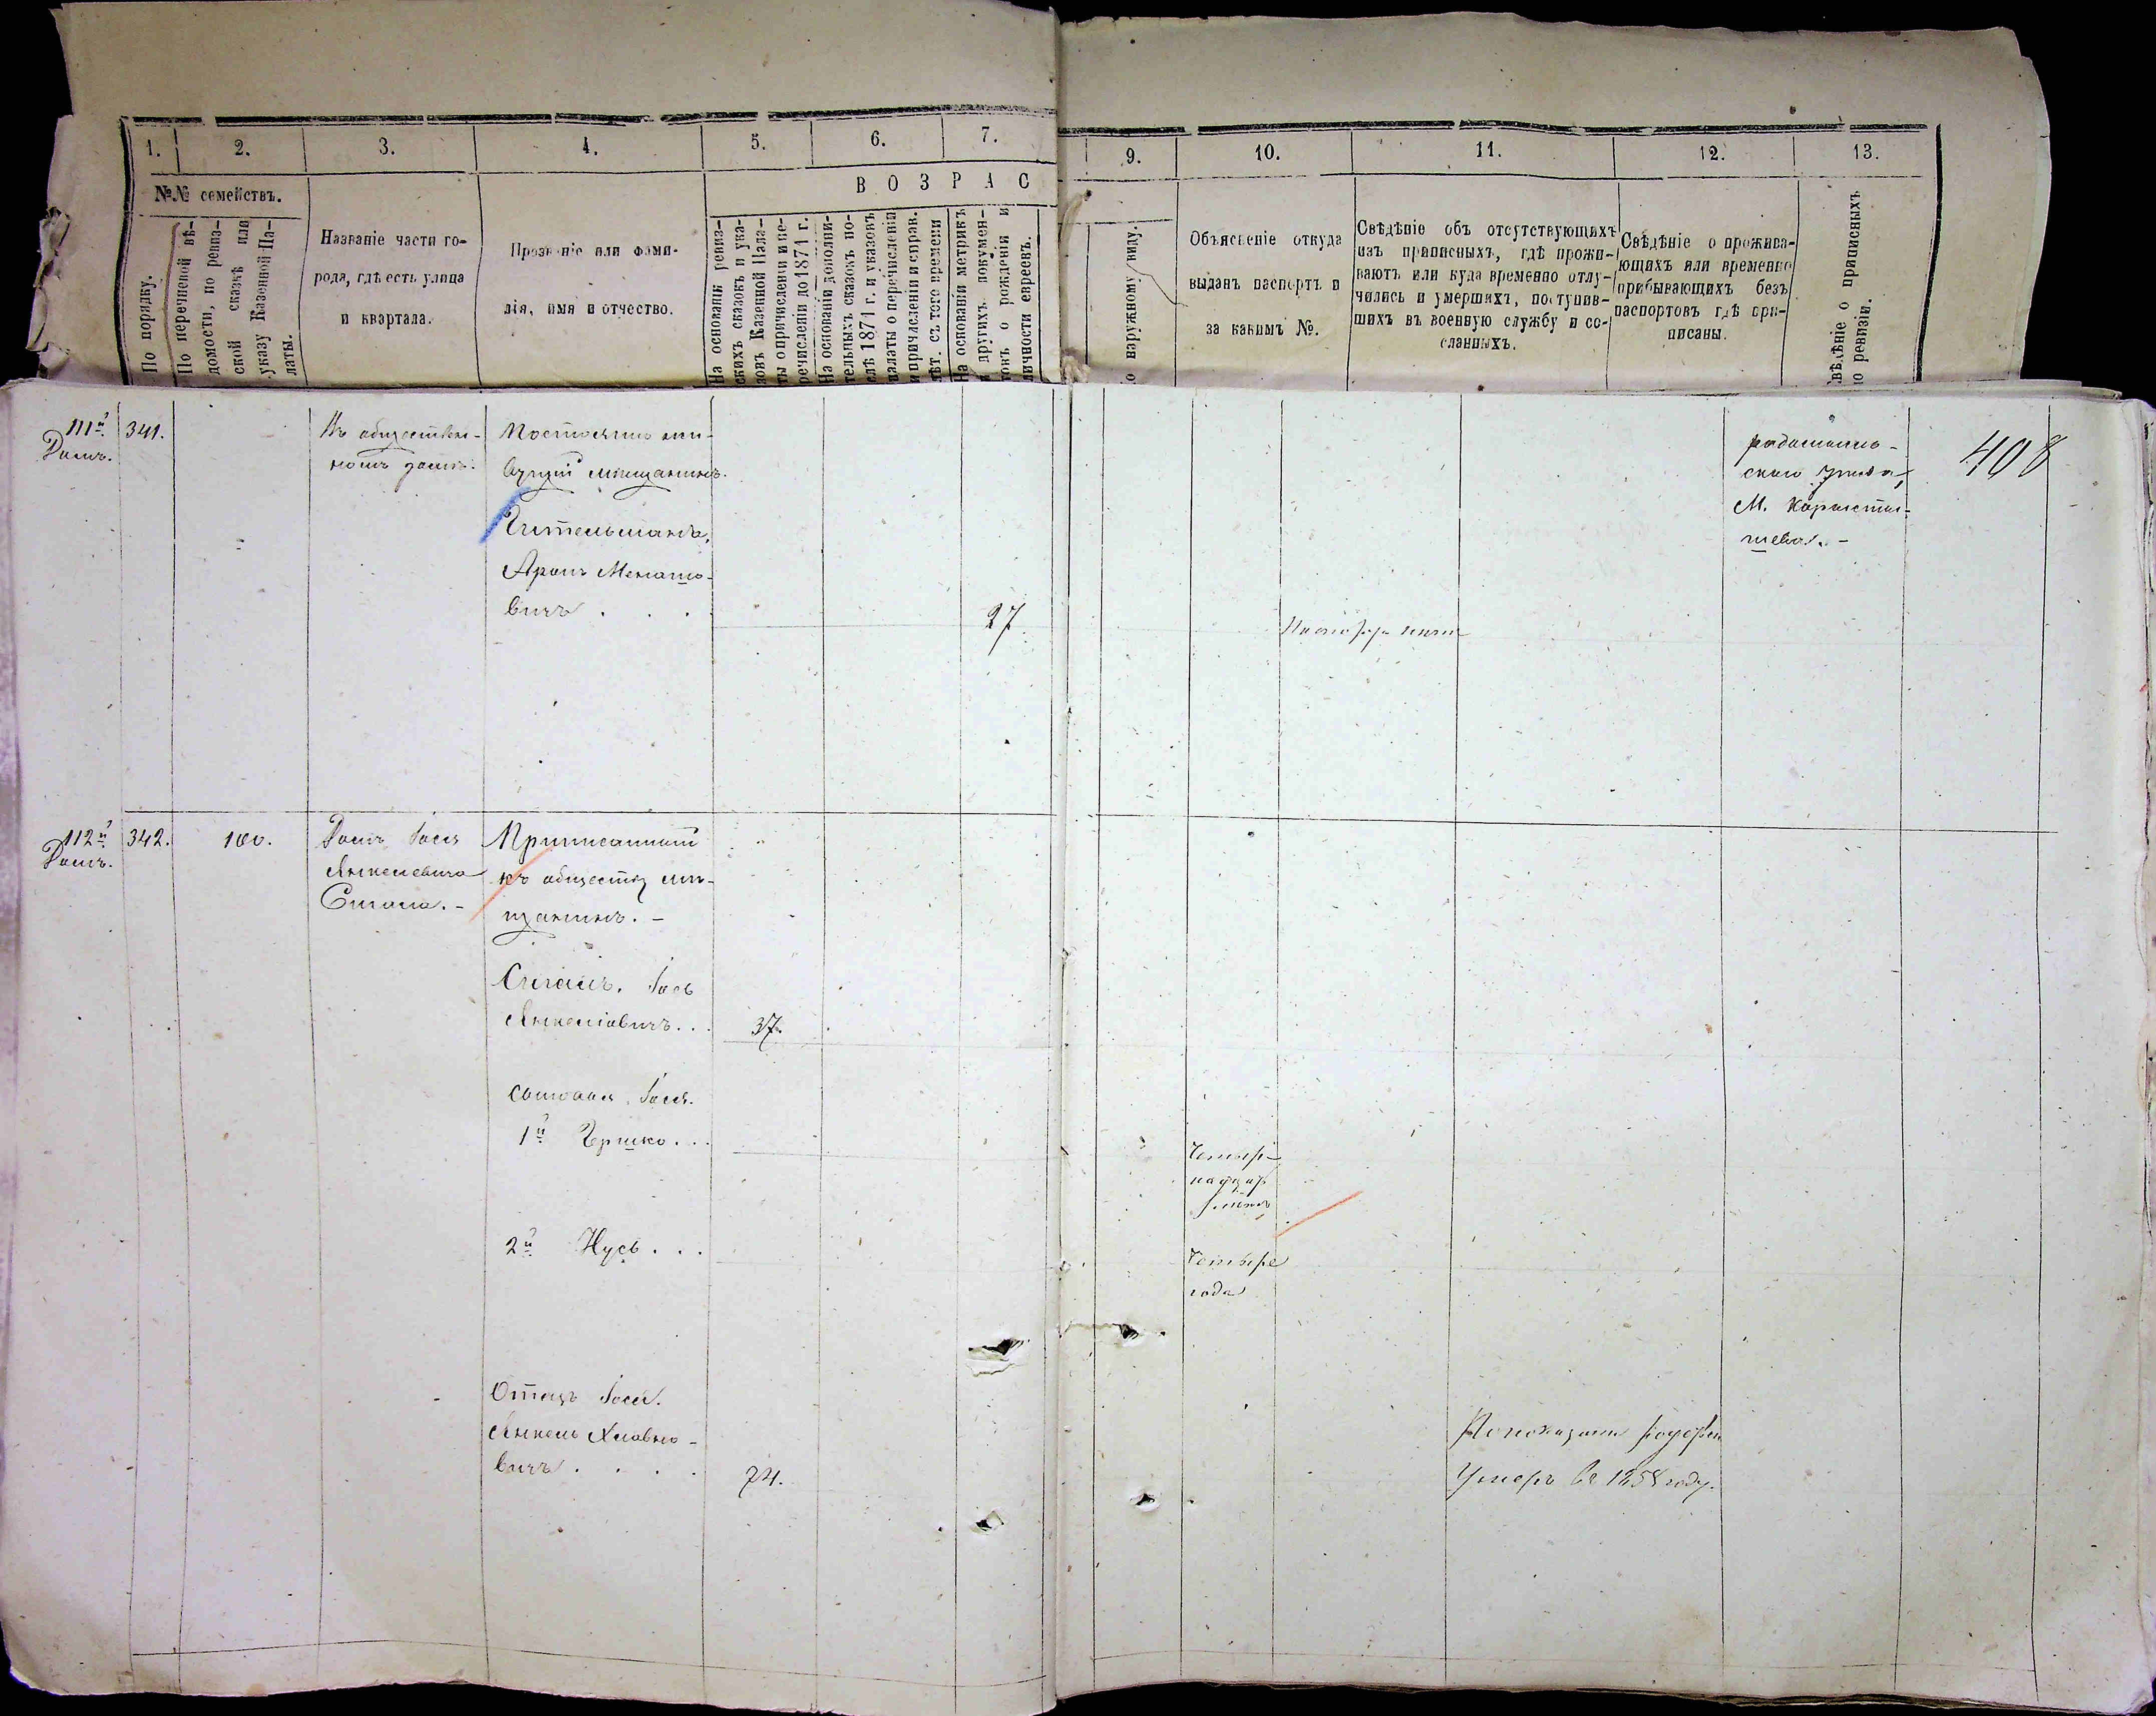 1.
2.
3.
4.
5.
6.
7.
9.
10.
11.
12.
13.
№№ семействъ.
В О З Р А С
По порядку.
По перечневой вѣ-
домости, по ревиз-
ской сказкѣ или
указу Казенной Па-
латы.
Названіе части го-
рода, гдѣ есть улица
и квартала.
Прозваніе или фами-
лія, имя и отчество.
На основаніи ревиз-
скихъ сказокъ и ука-
зовъ Казенной Пала-
ты о причисленіи и пе-
речисленіи до 1871 г.
На основаніи дополни-
тельныхъ сказокъ по-
слѣ 1871 г. и указовъ
палаты о перечисленіи
и причисленіи и справ.
лѣт. съ того времени
На основаніи метрикъ
и другихъ докумен-
товъ о рожденіи и
личности евреевъ.
о наружному виду.
Объясненіе откуда
выданъ паспортъ и
за какимъ №.
Свѣдѣніе объ отсутствующихъ
изъ приписныхъ, гдѣ прожи-
ваютъ или куда временно отлу-
чились и умершихъ, поступив-
шихъ въ военную службу и со-
сланныхъ.
Свѣдѣніе о прожива-
ющихъ или временно
прибывающихъ безъ
паспортовъ гдѣ при-
писаны.
вѣдѣніе о приписныхъ
по ревизіи.
111й
Домъ.
341.
Въ обществен-
номъ домѣ.
Постоянно жи-
вущій мѣщанинъ.
Гительманъ,
Аронъ Менашо-
вичъ . . .
27
радомысль-
скаго уѣзда,
М. Коросты-
шева. -
408
112й
Домъ.
342.
100.
Домъ Іося
Янкелевича
Сигала. -
Приписанный
къ обществу мѣ-
щанинъ. -
Сигалъ, Іось
Янкеліовичъ . . .
37.
сыновья Іося.
1й Гершко . . .
Четыр-
надцать
лѣтъ
2й Нусь . . .
Четыре
года
Отецъ Іося.
Янкель Хлавно-
вичъ . . . .
74.
По показанію
Умеръ въ 1858 году.